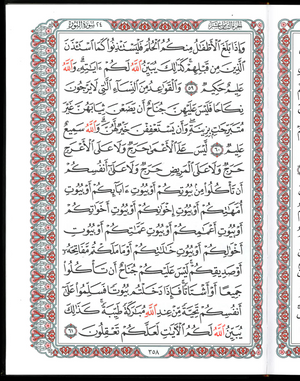 الجزء الثامن عشر
٢٤ سورة النور
وَإِذَا بَلَغَ ٱلْأَطْفَٰلُ مِنكُمُ ٱلْحُلُمَ فَلْيَسْتَـْٔذِنُوا۟ كَمَا ٱسْتَـْٔذَنَ
ٱلَّذِينَ مِن قَبْلِهِمْ كَذَٰلِكَ يُبَيِّنُ ٱللَّهُ لَكُمْ ءَايَٰتِهِۦ وَٱللَّهُ
عَلِيمٌ حَكِيمٌ ٥٩ وَٱلْقَوَٰعِدُ مِنَ ٱلنِّسَآءِ ٱلَّٰتِى لَا يَرْجُونَ
نِكَاحًا فَلَيْسَ عَلَيْهِنَّ جُنَاحٌ أَن يَضَعْنَ ثِيَابَهُنَّ غَيْرَ
مُتَبَرِّجَٰتٍۭ بِزِينَةٍ وَأَن يَسْتَعْفِفْنَ خَيْرٌ لَّهُنَّ وَٱللَّهُ سَمِيعٌ
عَلِيمٌ ٦٠ لَّيْسَ عَلَى ٱلْأَعْمَىٰ حَرَجٌ وَلَا عَلَى ٱلْأَعْرَجِ
حَرَجٌ وَلَا عَلَى ٱلْمَرِيضِ حَرَجٌ وَلَا عَلَىٰٓ أَنفُسِكُمْ
أَن تَأْكُلُوا۟ مِنۢ بُيُوتِكُمْ أَوْ بُيُوتِ ءَابَآئِكُمْ أَوْ بُيُوتِ
أُمَّهَٰتِكُمْ أَوْ بُيُوتِ إِخْوَٰنِكُمْ أَوْ بُيُوتِ أَخَوَٰتِكُمْ
أَوْ بُيُوتِ أَعْمَٰمِكُمْ أَوْ بُيُوتِ عَمَّٰتِكُمْ أَوْ بُيُوتِ
أَخْوَٰلِكُمْ أَوْ بُيُوتِ خَٰلَٰتِكُمْ أَوْ مَا مَلَكْتُم مَّفَاتِحَهُۥٓ
أَوْ صَدِيقِكُمْ لَيْسَ عَلَيْكُمْ جُنَاحٌ أَن تَأْكُلُوا۟
جَمِيعًا أَوْ أَشْتَاتًا فَإِذَا دَخَلْتُم بُيُوتًا فَسَلِّمُوا۟ عَلَىٰٓ
أَنفُسِكُمْ تَحِيَّةً مِّنْ عِندِ ٱللَّهِ مُبَٰرَكَةً طَيِّبَةً كَذَٰلِكَ
يُبَيِّنُ ٱللَّهُ لَكُمُ ٱلْءَايَٰتِ لَعَلَّكُمْ تَعْقِلُونَ ٦١
٣٥٨